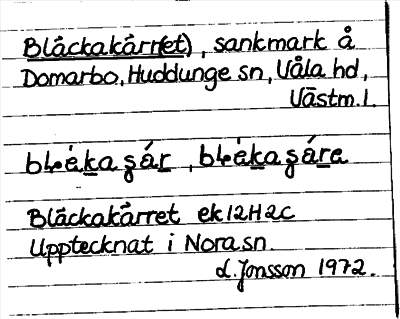 Bläckakärr(et), sankmark å
Domarbo, Huddunge sn, Våla hd,
Västm. l.
Bläckakärret ek 12H2C
Upptecknat i Nora sn.
L. Jonsson 1972.